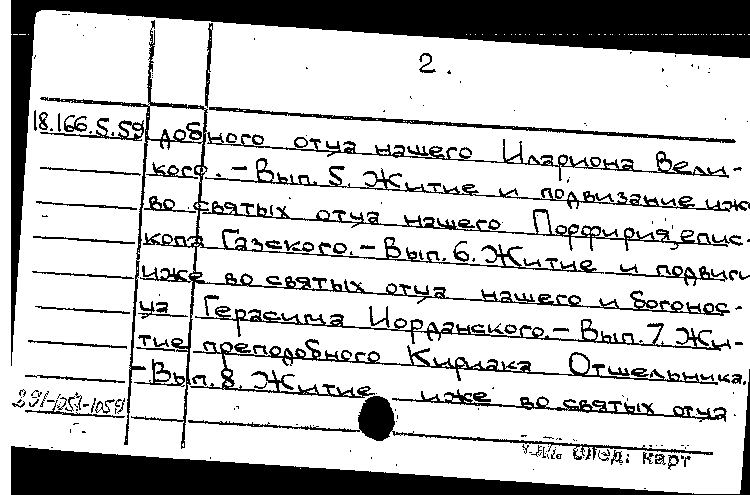 2.
18.166.5.59 добного отца нашего Илариона Вели-
кого. – Вып. 5. Житие и подвизание иже
во святых отца нашего Порфирия, епис-
копа Газского. – Вып. 6. Житие и подвиги
иже во святых отца нашего и богонос-
ца Герасима Иорданского. – Вып. 7. Жи-
тие преподобного Кириака Отшельника.
– Вып. 8. Житие иже во святых отца
291-1051-1058
след. карт